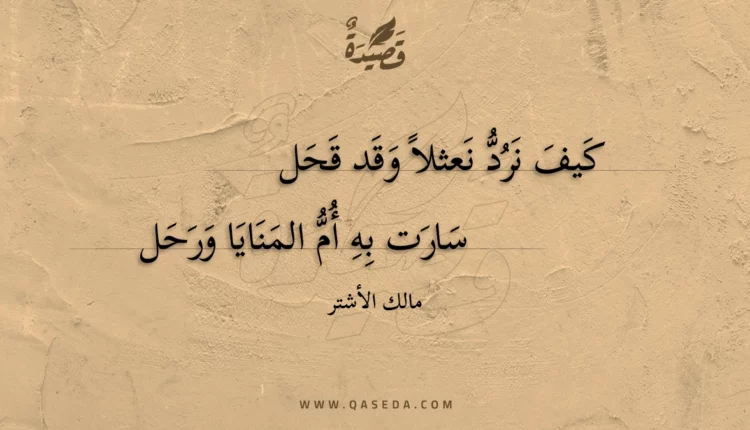 قَصِيْدَةٌ
كَيفَ نَرُدُّ نَعثلاً وَقَد قَحَل
سَارَت بِهِ أُمُّ المَنَايَا وَرَحَل
مالك الأشتر
WWW.QASEDA.COM